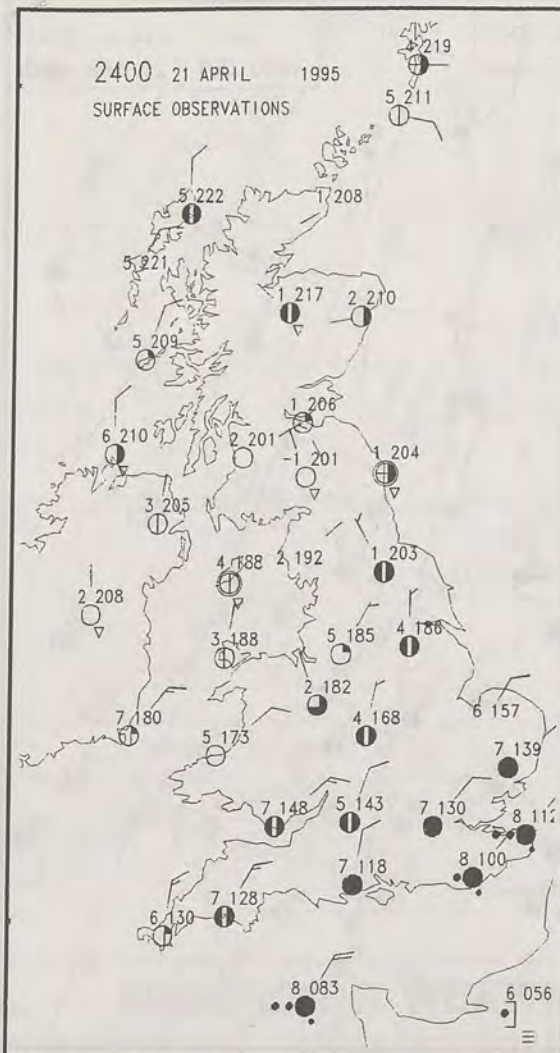 4 219
2400 21 APRIL 1995
SURFACE OBSERVATIONS
5 211
5 222
1 208
5 221
1 217
2 210
5 209
1 206
6 210
2 201
-1 201
1 204
3 205
4 188
2 192
1 203
2 208
3 188
5 185
4 186
2 182
6 157
7 180
5 173
4 168
7 139
7 148
5 143
7 130
8 112
7 118
8 100
7 128
6 130
8 083
6 056